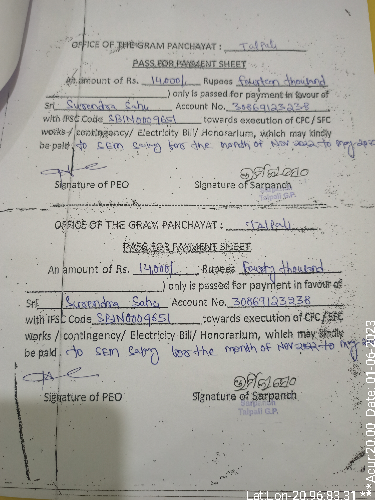 OFFICE OF THE GRAM PANCHAYAT : Talpali
PASS FOR PAYMENT SHEET
An amount of Rs. 14,000/- Rupees fourteen thousand
) only is passed for payment in favour of
Sri Surendra Sahu Account No. 30869123238
with IFSC Code SBIN0009651 towards execution of CFC / SFC
works / contingency/ Electricity Bill/ Honorarium, which may kindly
be paid to SEM for the month of Nov 2022 to may 2023
Signature of PEO Signature of Sarpanch
Talpali G.P.
OFFICE OF THE GRAM PANCHAYAT : Talpali
PASS FOR PAYMENT SHEET
An amount of Rs. 14,000/- Rupees thousand
) only is passed for payment in favour of
Sri Surendra Sahu Account No. 30869123238
with IFSC Code SBIN0009651 towards execution of CFC / SFC
works / contingency/ Electricity Bill/ Honorarium, which may kindly
be paid to SEM for the month of Nov-2022 to may
Signature of PEO Signature of Sarpanch
Talpali G.P.
Lat Lon-20.96,83.31
***Acur:20.00 Date:01-06-2023